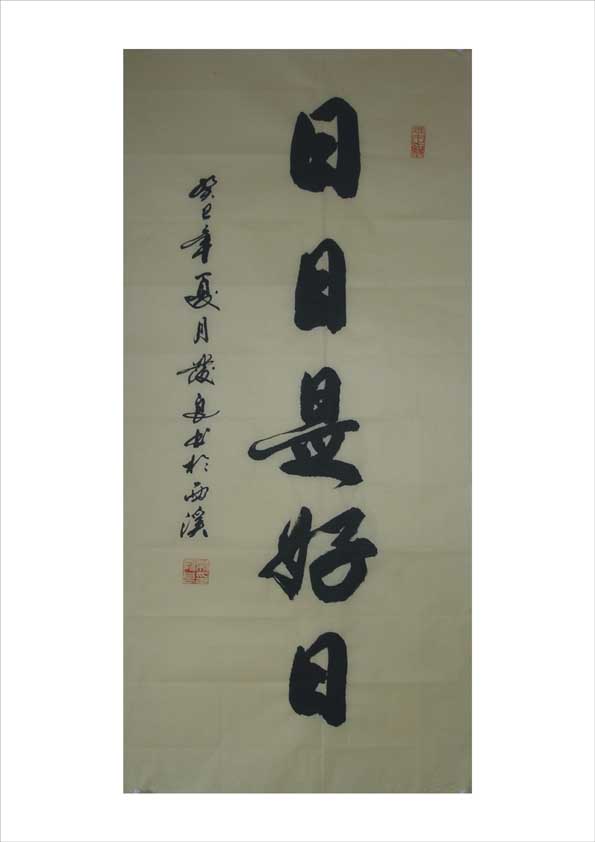 日日是好日
癸巳年夏月發良书於西溪